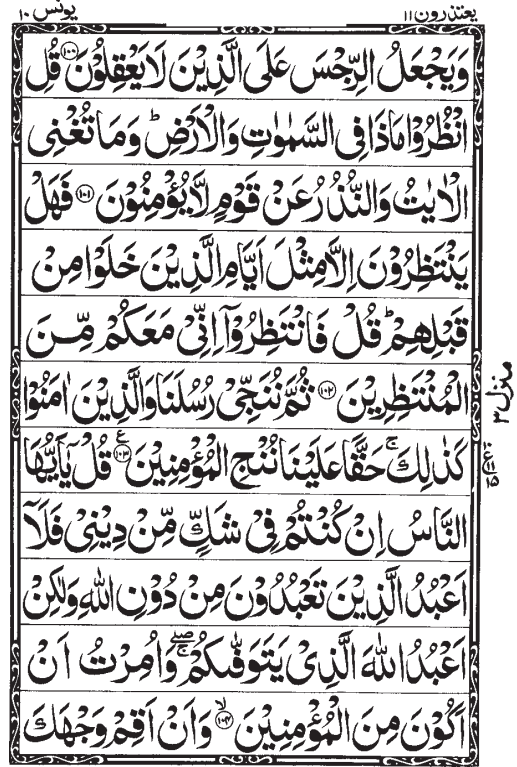 يعتذرون ١١ يونس ١٠
وَيَجْعَلُ الرِّجْسَ عَلَى الَّذِيْنَ لَا يَعْقِلُوْنَ ﴿١٠٠﴾ قُلِ
انْظُرُوْا مَاذَا فِى السَّمٰوٰتِ وَالْاَرْضِ ؕ وَمَا تُغْنِى
الْاٰيٰتُ وَالنُّذُرُ عَنْ قَوْمٍ لَّا يُؤْمِنُوْنَ ﴿١٠١﴾ فَهَلْ
يَنْتَظِرُوْنَ اِلَّا مِثْلَ اَيَّامِ الَّذِيْنَ خَلَوْا مِنْ
قَبْلِهِمْ ؕ قُلْ فَانْتَظِرُوْۤا اِنِّىْ مَعَكُمْ مِّنَ
الْمُنْتَظِرِيْنَ ﴿١٠٢﴾ ثُمَّ نُنَجِّىْ رُسُلَنَا وَالَّذِيْنَ اٰمَنُوْا
كَذٰلِكَ ۚ حَقًّا عَلَيْنَا نُنْجِ الْمُؤْمِنِيْنَ ﴿١٠٣﴾ ع قُلْ يٰۤاَيُّهَا
النَّاسُ اِنْ كُنْتُمْ فِىْ شَكٍّ مِّنْ دِيْنِىْ فَلَاۤ
اَعْبُدُ الَّذِيْنَ تَعْبُدُوْنَ مِنْ دُوْنِ اللّٰهِ وَلٰكِنْ
اَعْبُدُ اللّٰهَ الَّذِىْ يَتَوَفّٰٮكُمْ ۖۚ وَاُمِرْتُ اَنْ
اَكُوْنَ مِنَ الْمُؤْمِنِيْنَ ﴿١٠٤﴾ ۙ وَاَنْ اَقِمْ وَجْهَكَ
منزل ٣